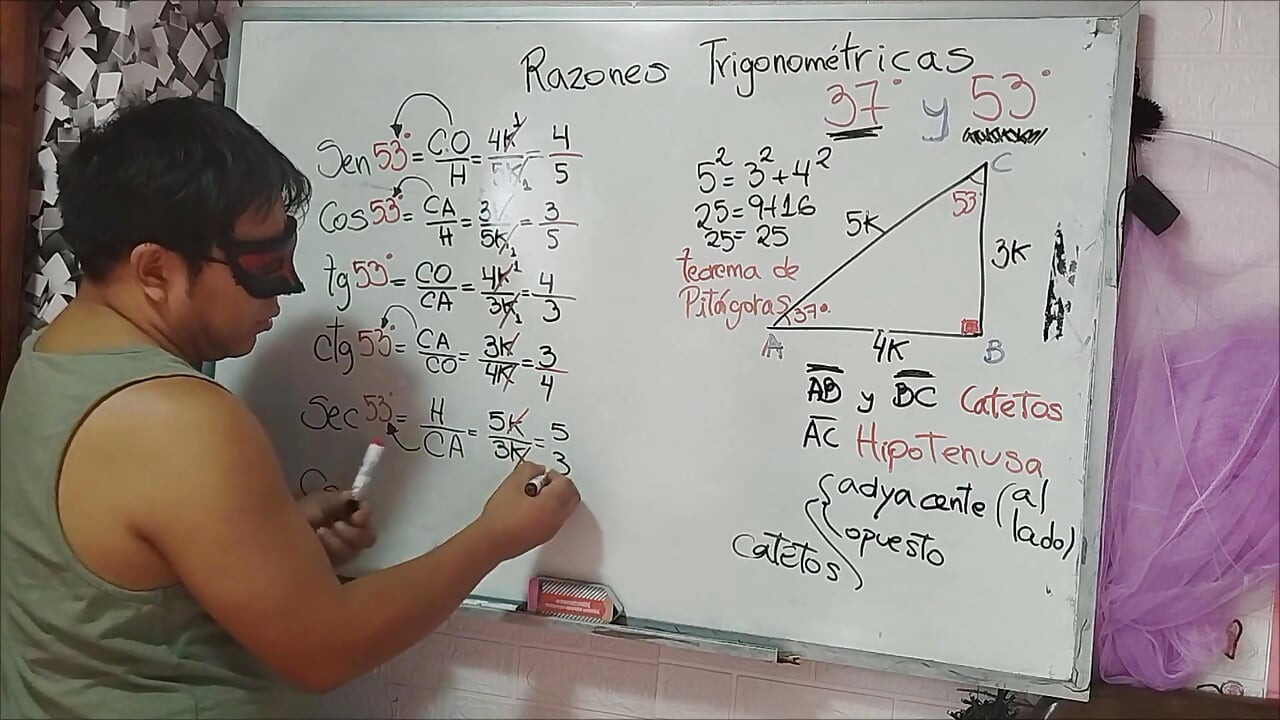 Razones Trigonométricas
37° y 53°
Sen 53° = CO/H = 4K/5K = 4/5
Cos 53° = CA/H = 3K/5K = 3/5
tg 53° = CO/CA = 4K/3K = 4/3
ctg 53° = CA/CO = 3K/4K = 3/4
Sec 53° = H/CA = 5K/3K = 5/3
5² = 3² + 4²
25 = 9+16
25 = 25
teorema de
Pitágoras
C
53
5K
3K
37°
A
4K
B
AB y BC Catetos
AC Hipotenusa
Catetos
adyacente (al
lado)
opuesto